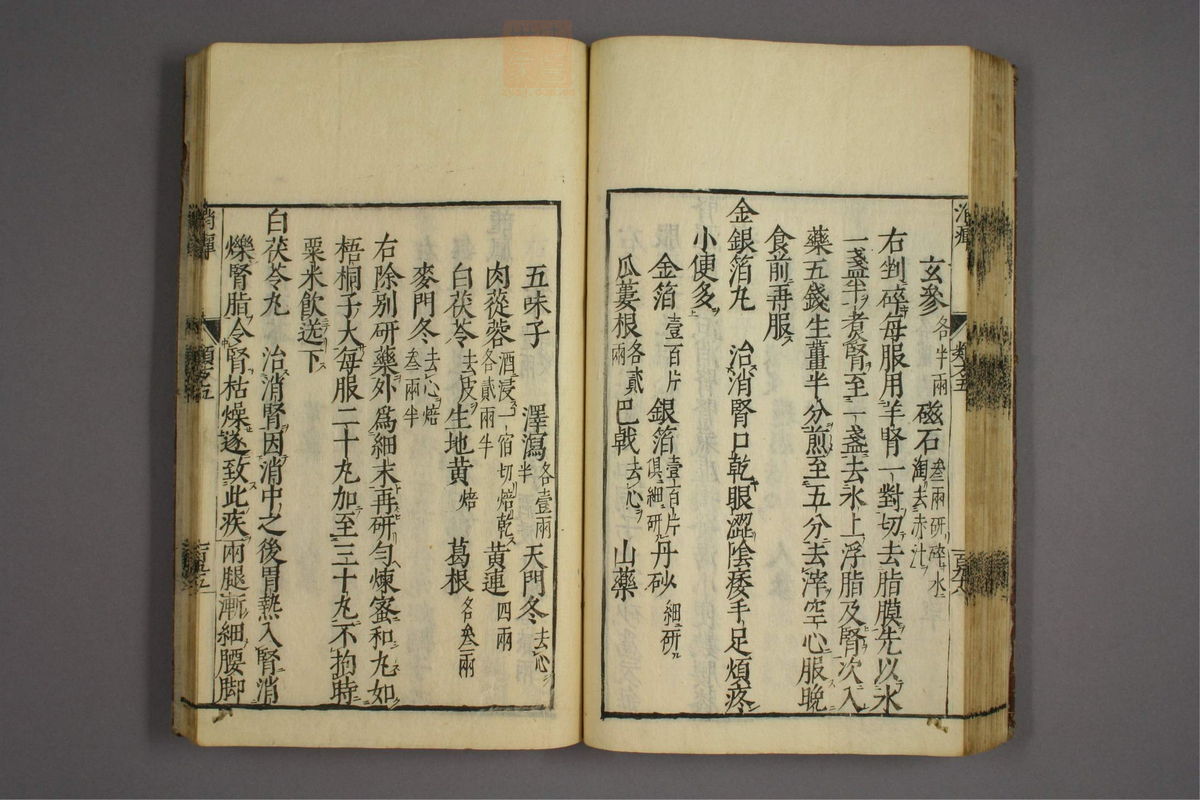 玄參各半兩 磁石叁兩研碎水淘去赤汁
右剉碎每服用羊腎一對切去脂膜先以水
一盞半煮腎至一盞去水上浮脂及腎次入
藥五錢生薑半分煎至五分去滓空心服晚
食前再服
金銀箔丸 治消腎口乾眼澀陰痿手足煩疼
小便多
金箔壹百片 銀箔壹百片俱細研 丹砂細研
瓜蔞根各貳兩 巴戟去心 山藥
五味子 澤瀉各壹兩半 天門冬去心
肉蓯蓉酒浸一宿切焙乾各貳兩半 黄連四兩
白茯苓去皮 生地黄焙 葛根各叁兩
麥門冬去心焙叁兩半
右除别研藥外為細末再研匀煉蜜和丸如
梧桐子大每服二十丸加至三十丸不拘時
粟米飲送下
白茯苓丸 治消腎因消中之後胃熱入腎消
爍腎脂令腎枯燥遂致此疾兩腿漸細腰脚